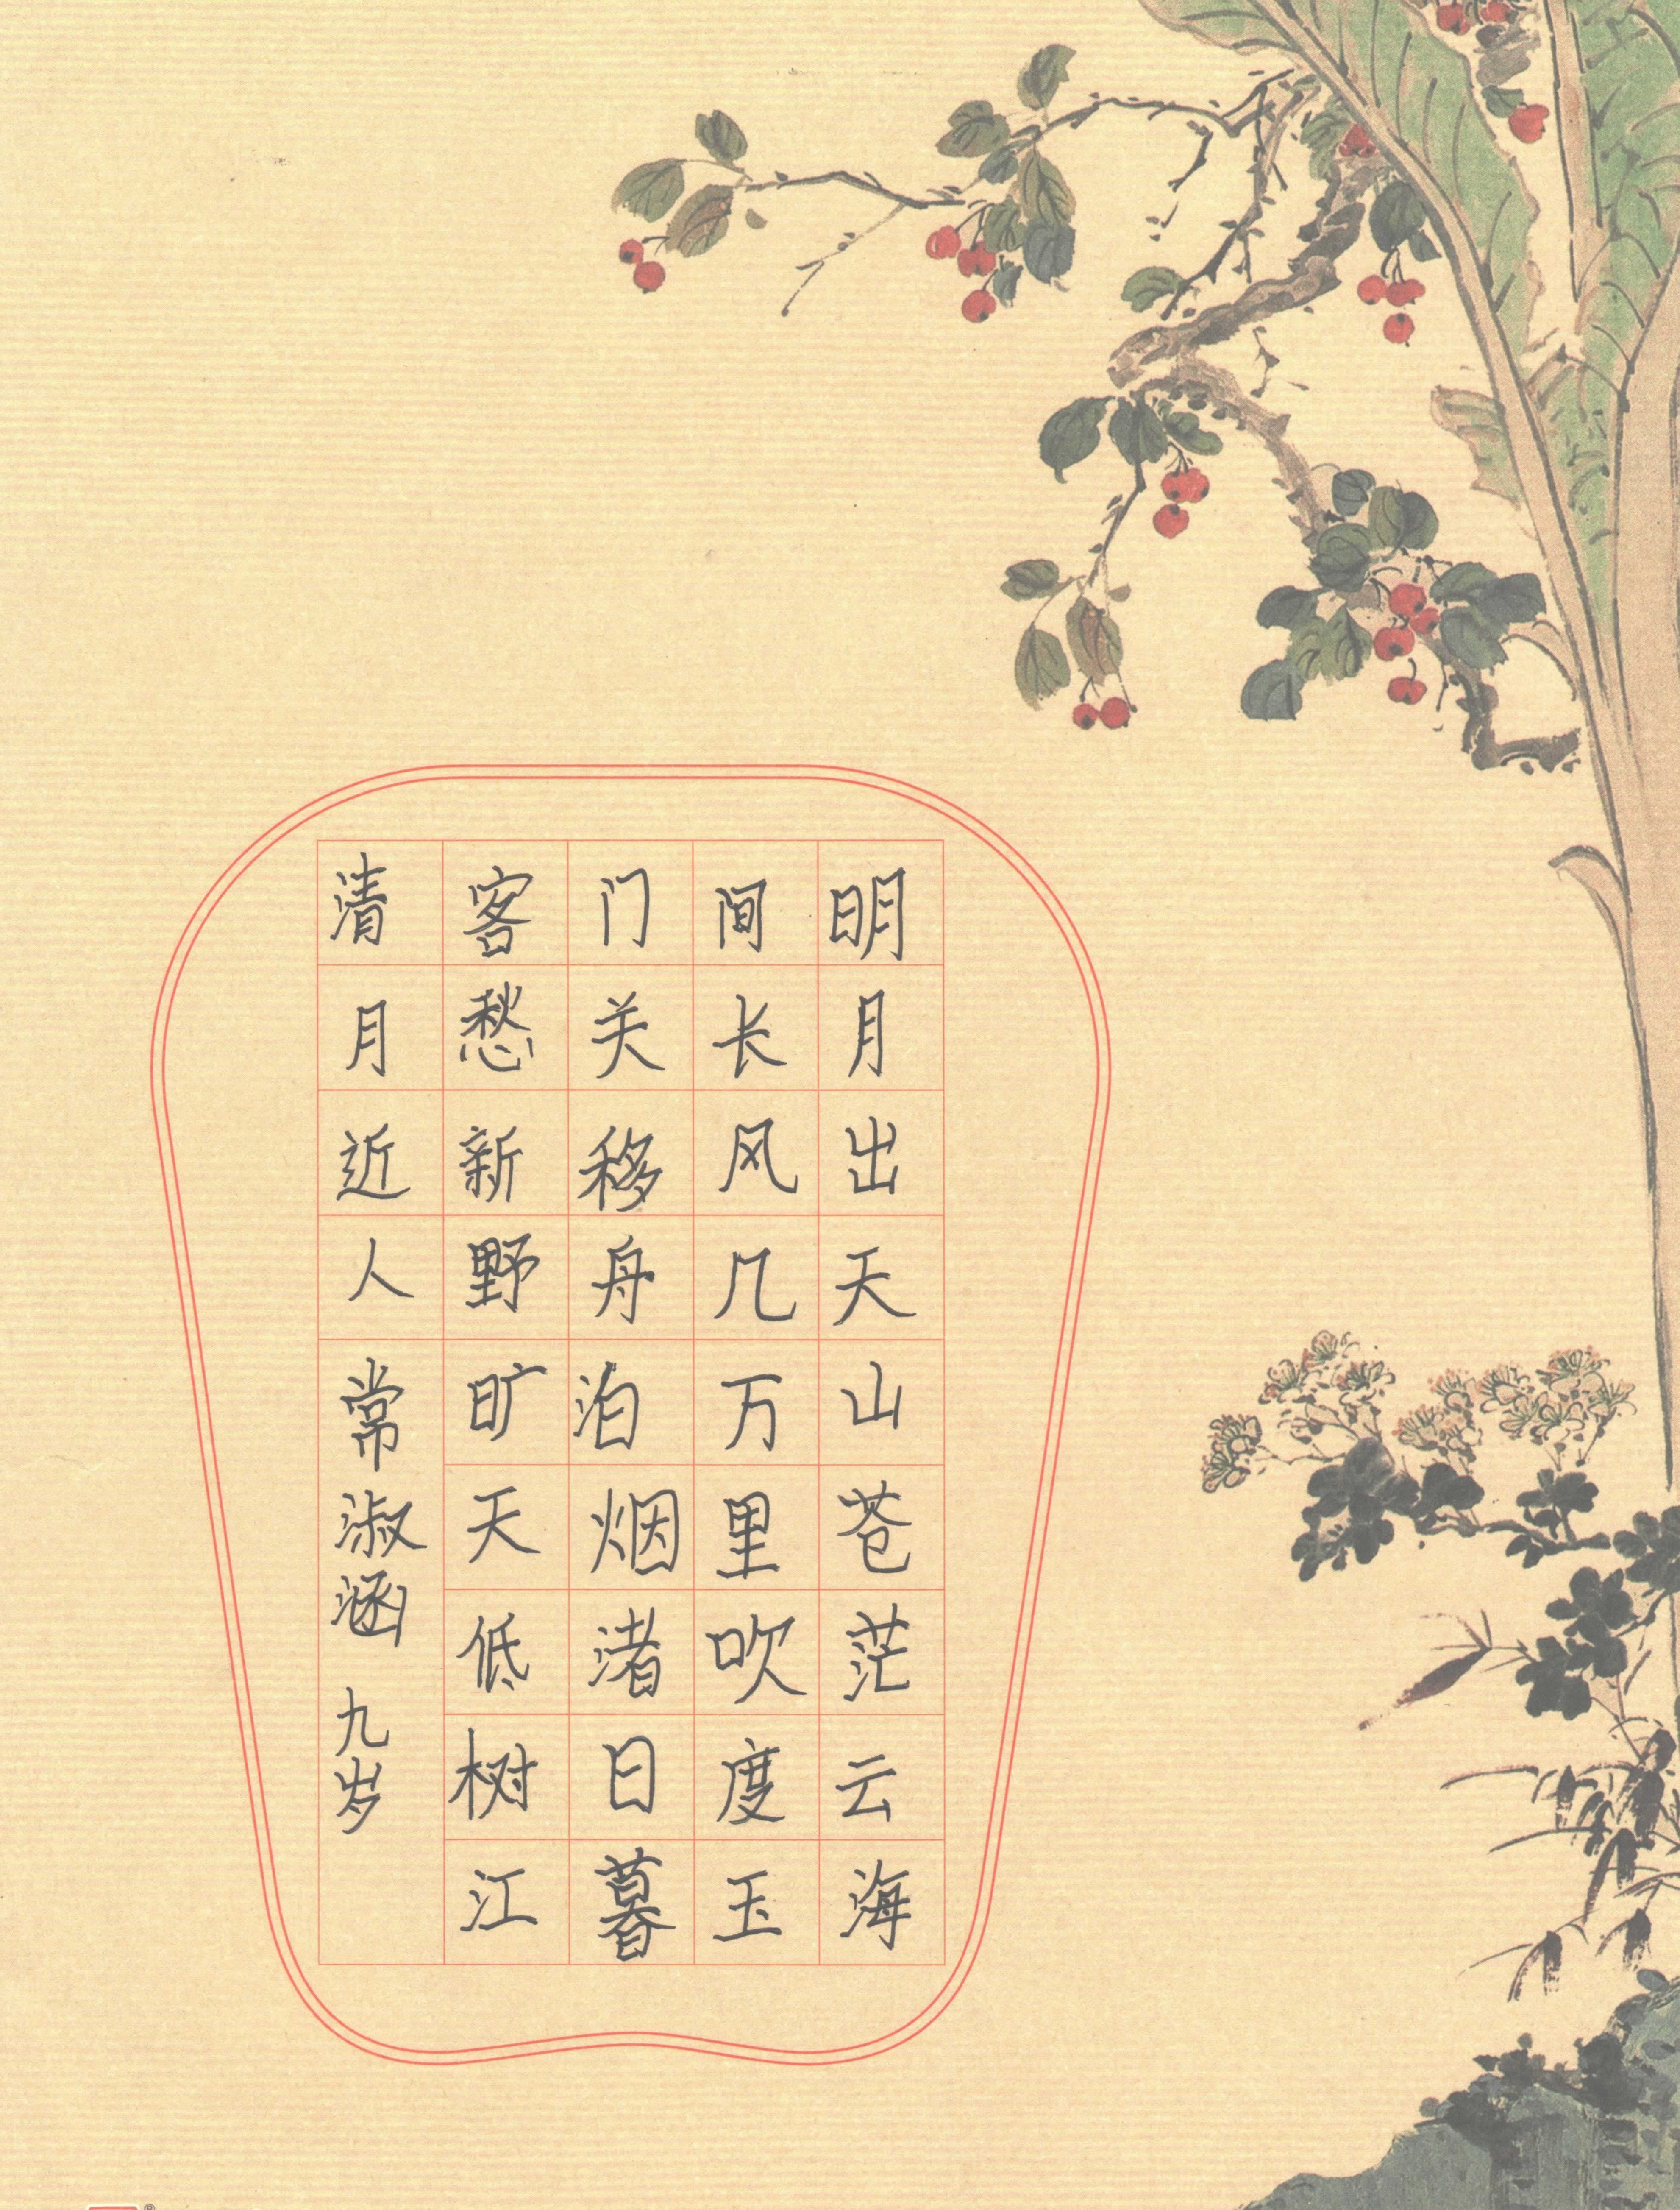 明月出天山苍茫云海
间长风几万里吹度玉
门关移舟泊烟渚日暮
客愁新野旷天低树江
清月近人常淑涵九岁